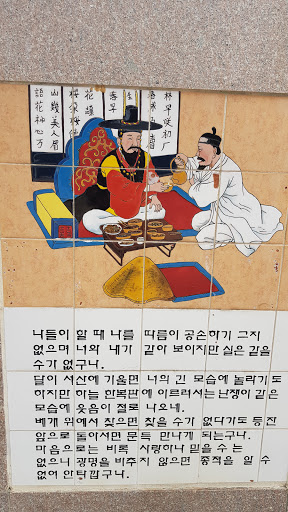 나들이 할 때 나를 따름이 공손하기 그지
없으며 너와 내가 같아 보이지만 실은 같을
수가 없구나.
달이 서산에 기울면 너의 긴 모습에 놀라기도
하지만 하늘 한복판에 이르러서는 난쟁이 같은
모습에 웃음이 절로 나오네.
베개 위에서 찾으면 찾을 수가 없다가도 등잔
앞으로 돌아서면 문득 만나게 되는구나.
마음으로는 비록 사랑하나 믿을 수는
없으니 광명을 비추지 않으면 종적을 알 수
없어 안타깝구나.